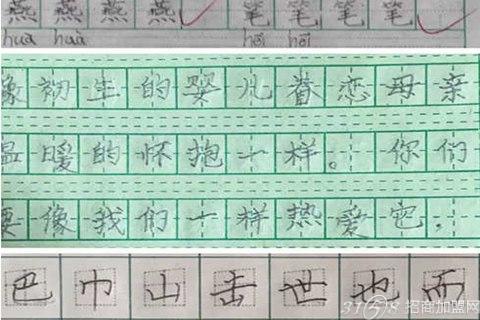 燕燕燕燕笔笔笔笔
huà huà
像初生的婴儿眷恋母亲
温暖的怀抱一样。你们
要像我们一样热爱它，
巴巾山击世也而
3158招商加盟网